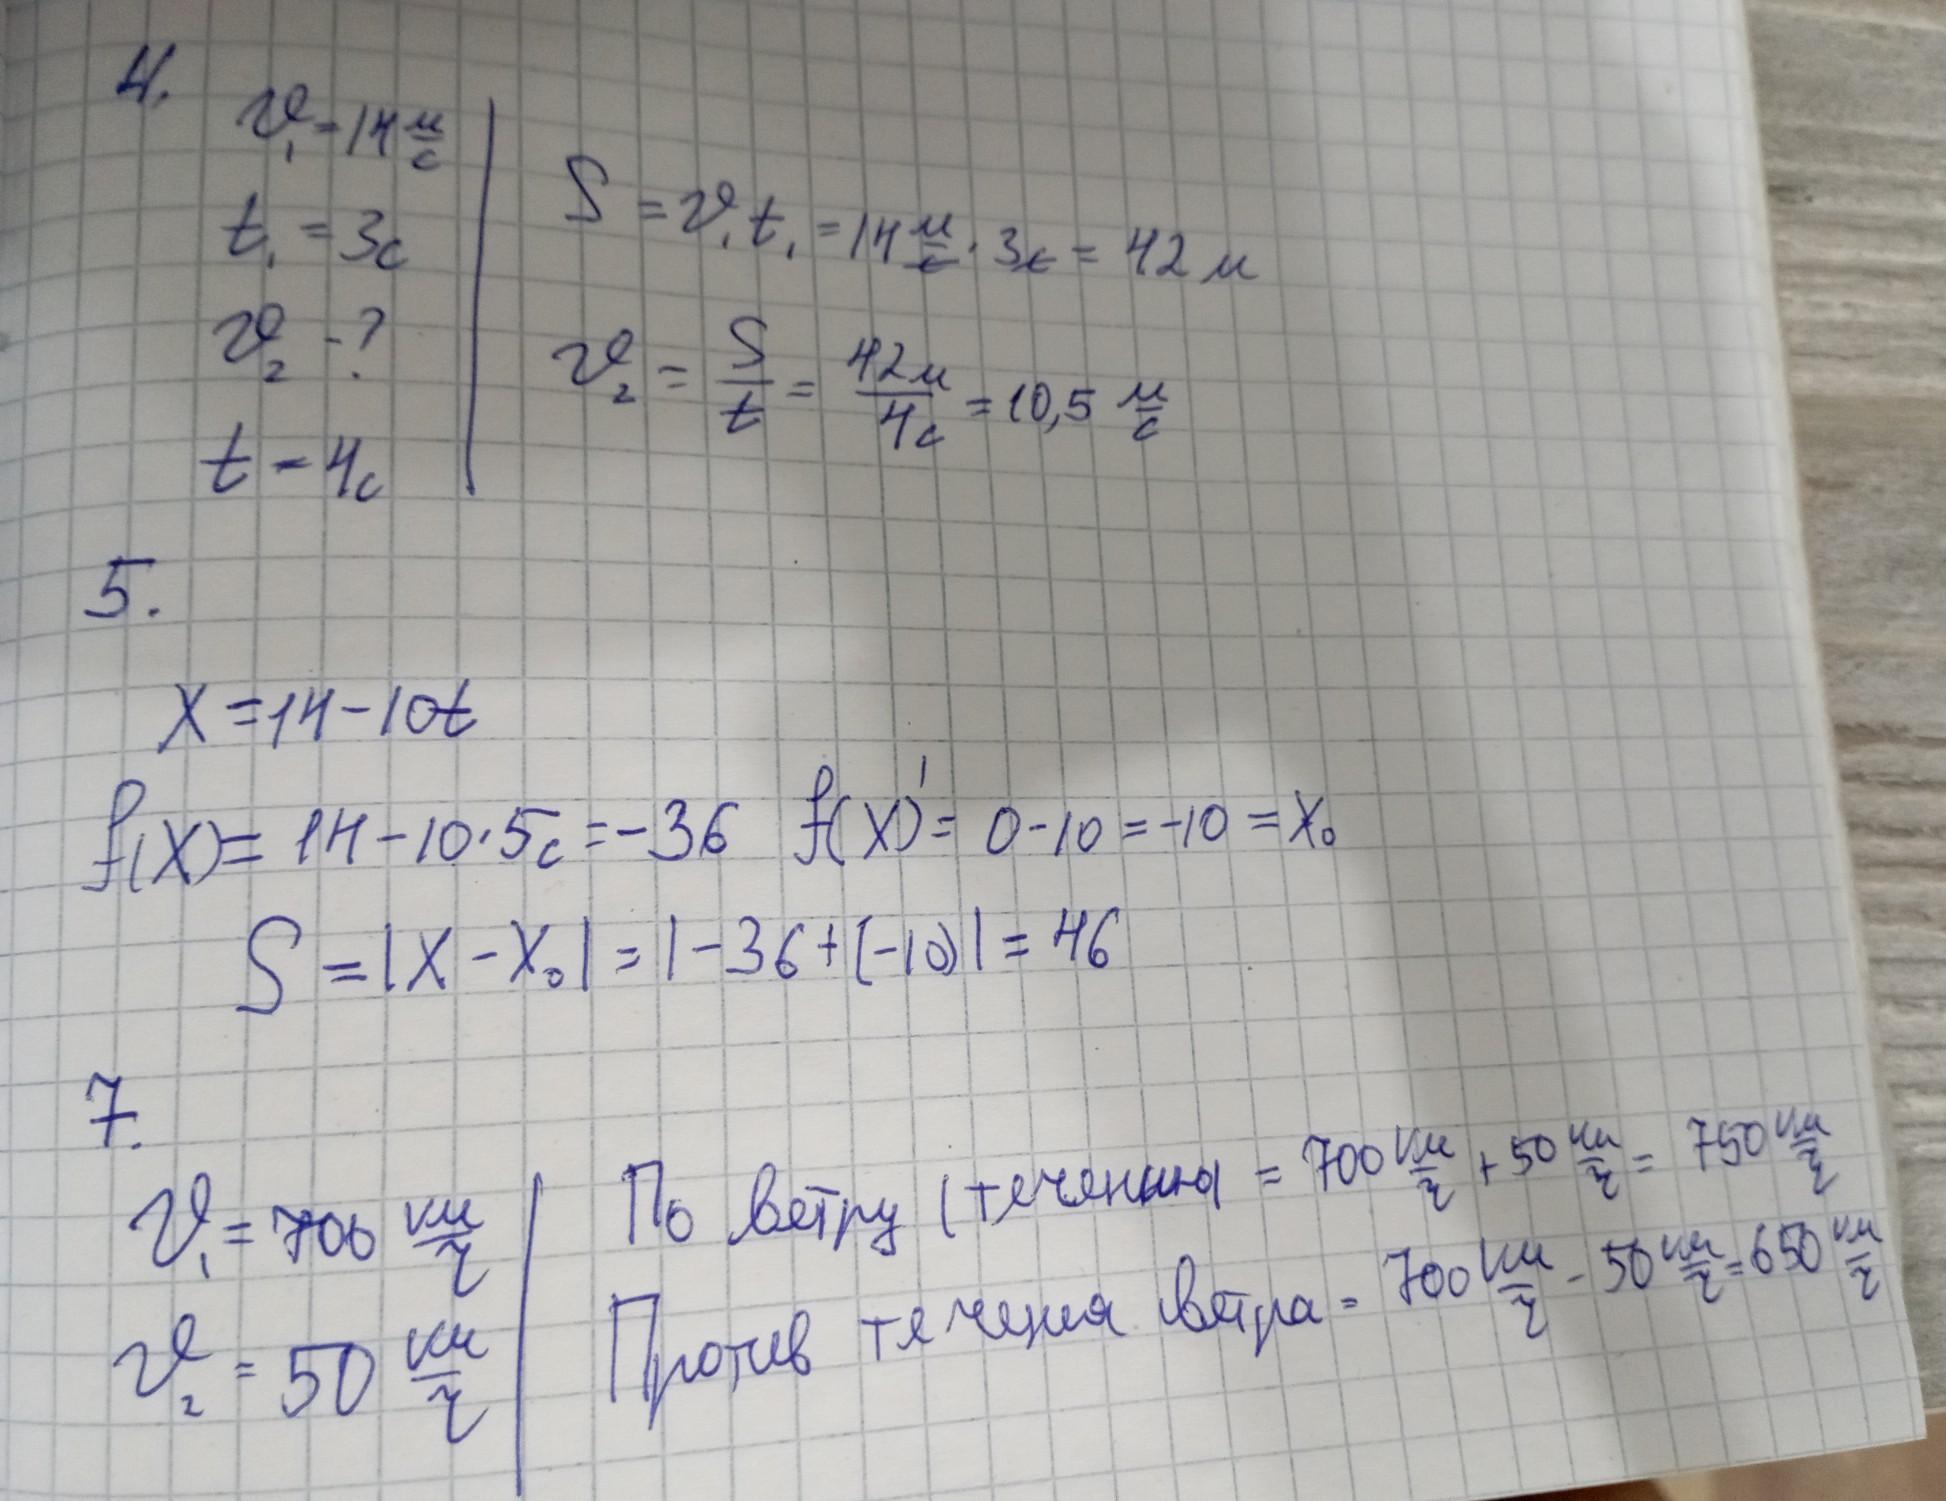 4.
v₁ = 14 м/с
t₁ = 3с
v₂ - ?
t = 4с
S = v₁t₁ = 14 м/с · 3с = 42 м
v₂ = S/t = 42м/4с = 10,5 м/с
5.
X = 14 - 10t
f(X) = 14 - 10 · 5с = -36 f(X)' = 0 - 10 = -10 = X₀
S = |X - X₀| = |-36 + (-10)| = 46
7.
v₁ = 700 км/ч
v₂ = 50 км/ч
По ветру (течению) = 700 км/ч + 50 км/ч = 750 км/ч
Против течения ветра = 700 км/ч - 50 км/ч = 650 км/ч